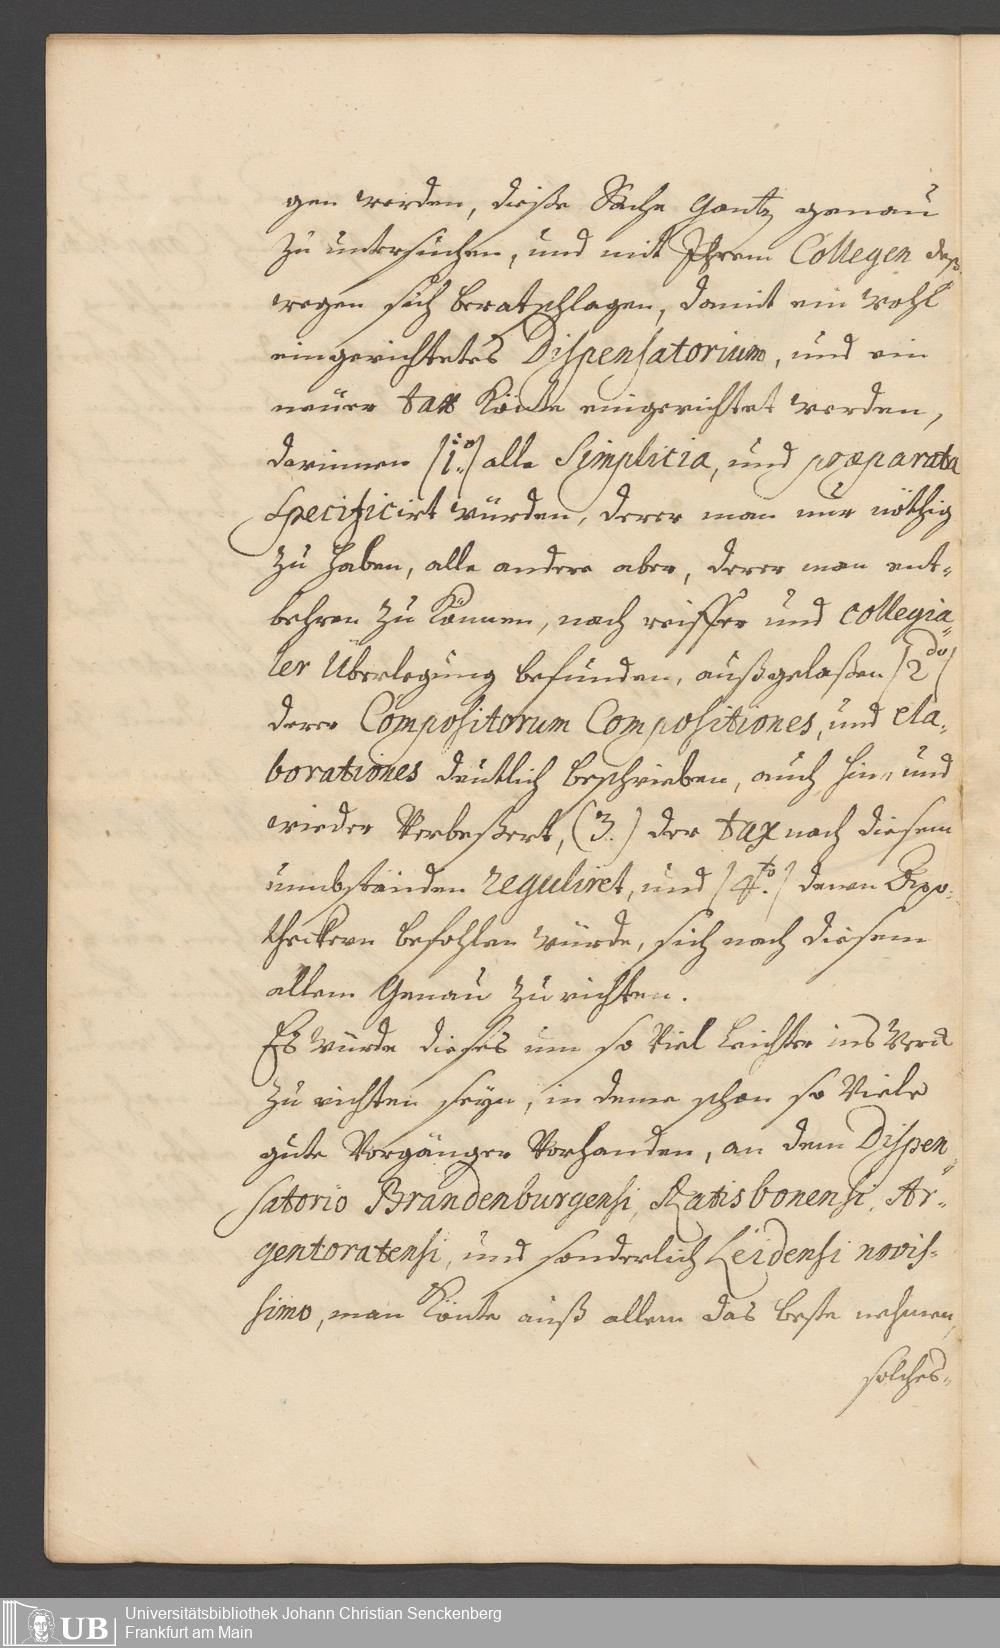 gen werden, dieße Sache Gantz genau
Zu untersuchen, und mit Ihrem Collegen deß,
wegen sich berathschlagen, damit ein wohl
eingerichtetes Dispensatorium, und ein
neuer tax könte eingerichtet werden,
darinnen (1.mo) alle Simplicia, und præparata
specificirt würden, derer man nur nöthig
zu haben, alle andere aber, derer man ent-
behren zu können, nach reiffer und collegia-
ler Überlegung befunden, außgelaßen (2do)
derer Compositorum Compositiones, und ela-
borationes deutlich beschrieben, auch hin- und
wieder Verbeßert, (3.) der tax nach diesem
umbständen reguliret, und (4to.) denen Apo-
theckern befohlen würde, sich nach diesem
allem Genau zu richten.
Es würde dieses um so Viel Leichter ins Werck
Zu richten seyn, in deme schon so Viele
gute Vorgänger Vorhanden, an dem Dispen-
satorio Brandenburgensi, Ratisbonensi, Ar-
gentoratensi, und sonderlich Leidensi novis-
simo, man könte auß allem das beste nehmen,
solches-
Universitätsbibliothek Johann Christian Senckenberg
Frankfurt am Main
UB